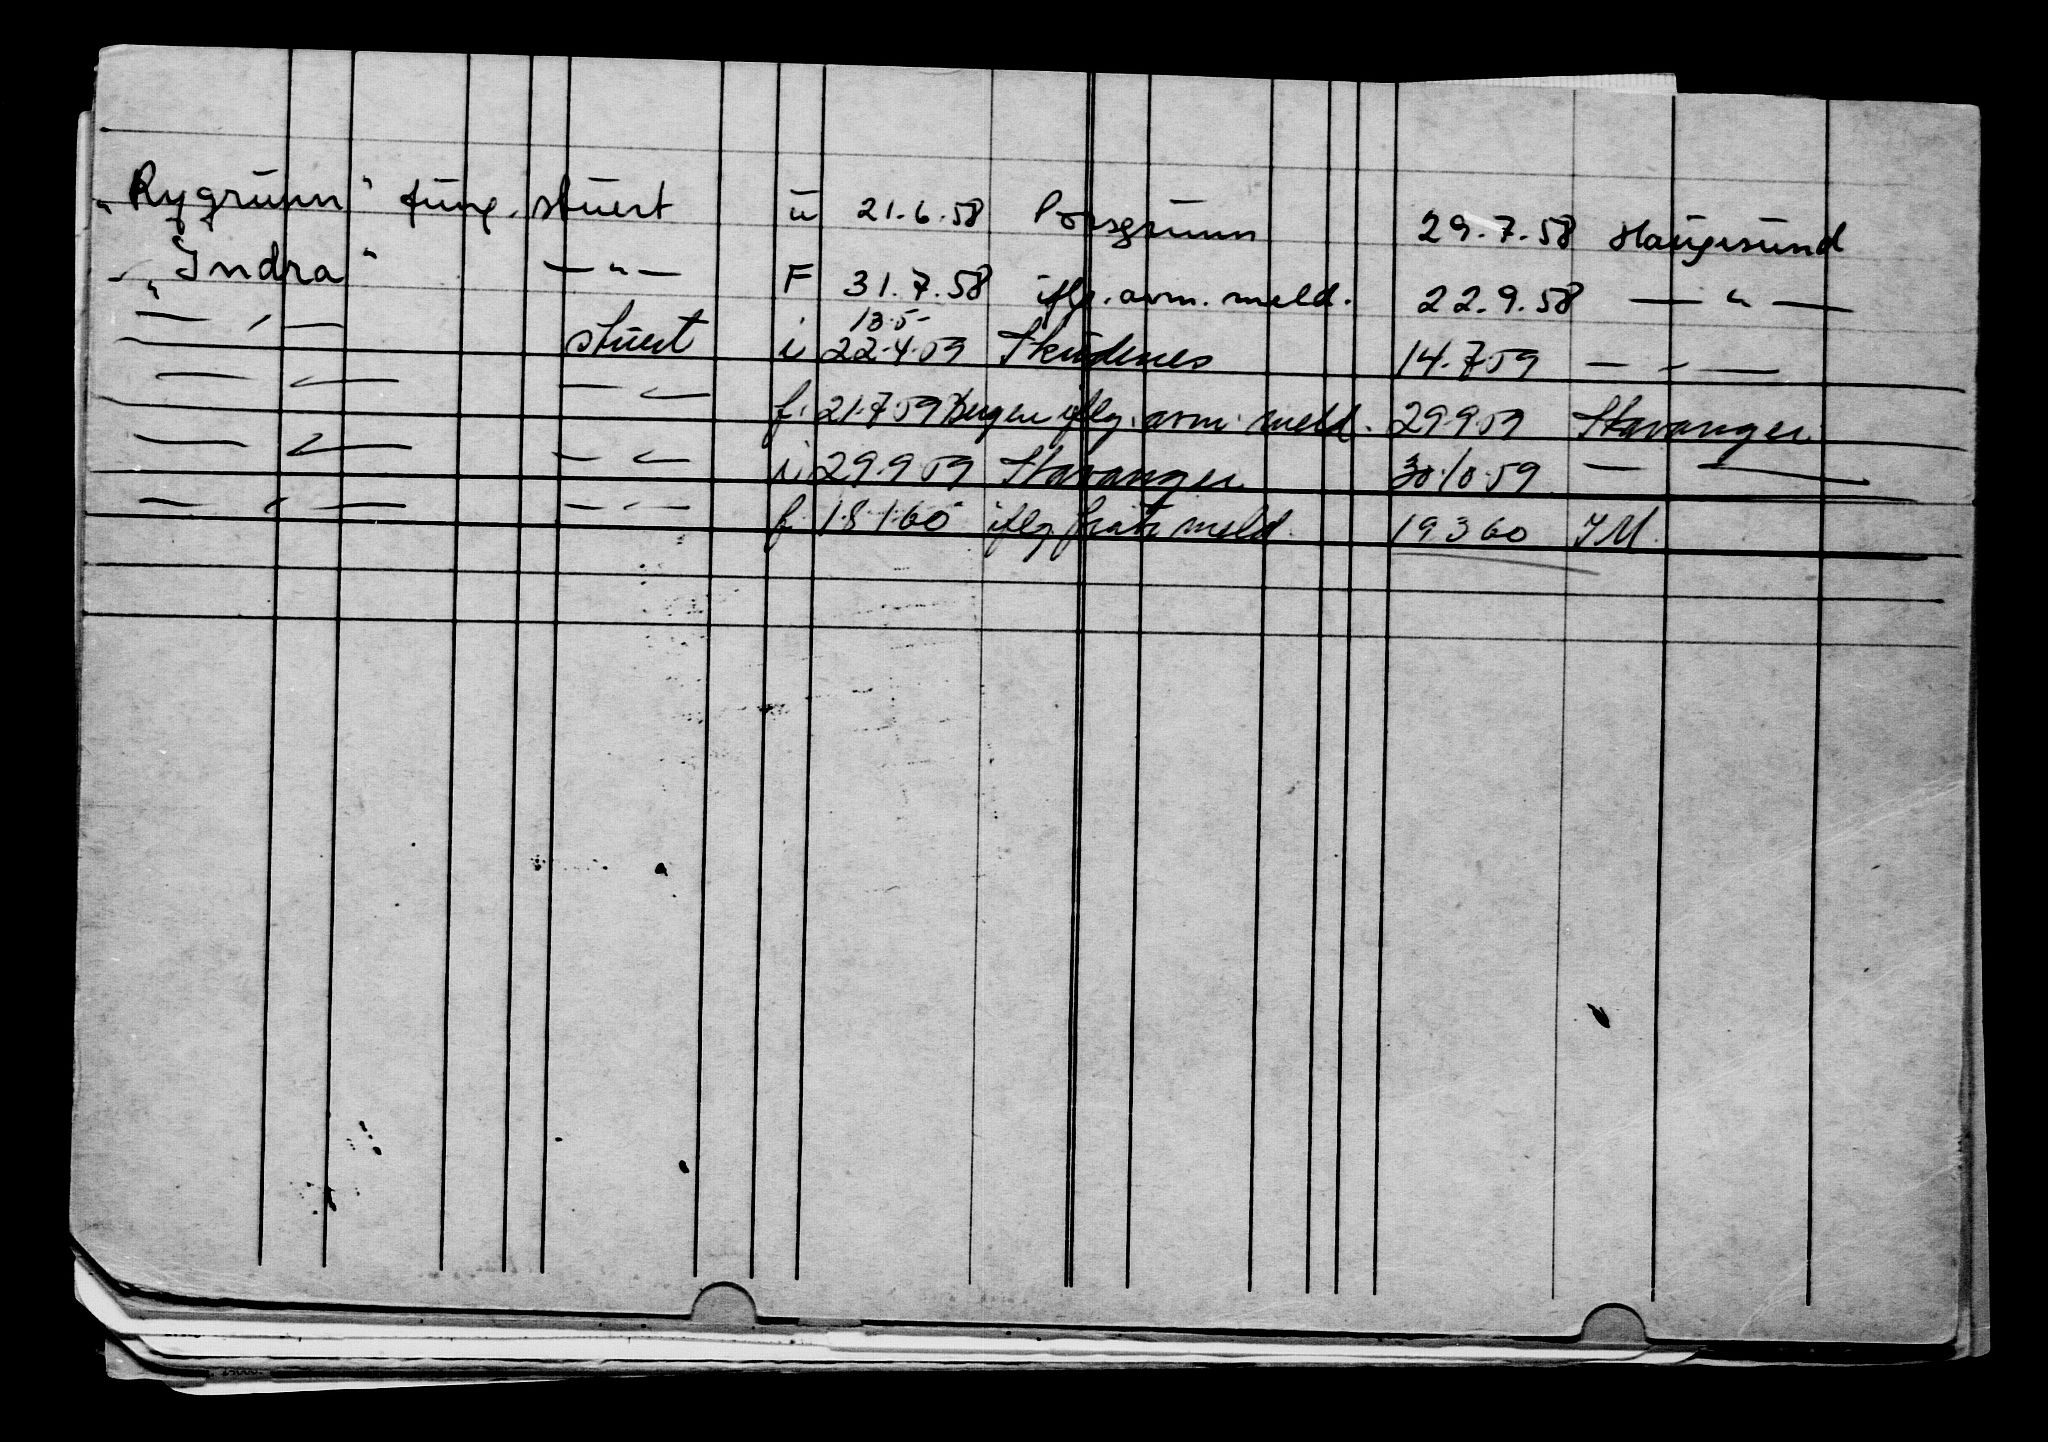 „Rygrunn" fung. stuert u 21.6.58 Porsgrunn 29.7.58 Haugesund
„Indra" — " — F 31.7.58 iflg. avm. meld. 22.9.58 — " —
13.5-
— " — stuert i 22.4.59 Skudenes 14.7.59 — " —
— " — — " — f. 21.7.59 Bergen iflg. avm. meld. 29.9.59 Stavanger
— " — — " — i 29.9.59 Stavanger 30.10.59 — " —
— " — — " — f. 18.1.60 iflg. meld. 19360 IM.